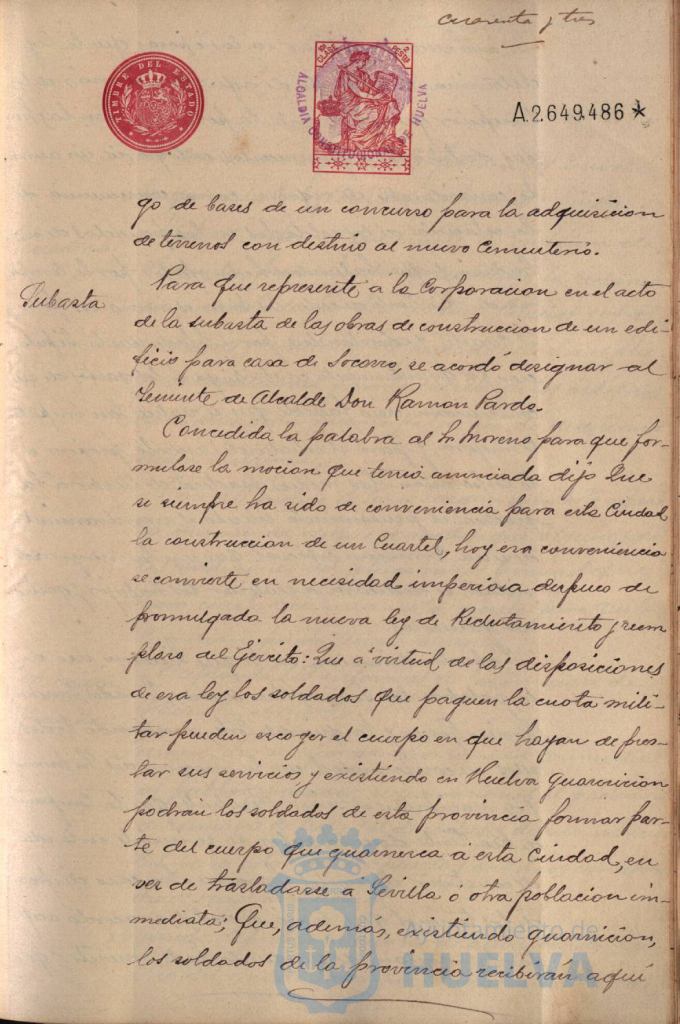 cuarenta y tres
TIMBRE DEL ESTADO
CLASE
PESETA
ALCALDIA CONSTITUCIONAL DE HUELVA
A.2.649.486 *
go de bases de un concurso para la adquisicion
de terrenos con destino al nuevo Cementerio.
Subasta
Para que represente á la Corporacion en el acto
de la subasta de las obras de construccion de un edi-
ficio para casa de Socorro, se acordó designar al
Teniente de Alcalde Don Ramon Pardo.
Concedida la palabra al Sr Moreno para que for-
mulase la mocion que tenia anunciada dijo Que
si siempre ha sido de conveniencia para esta Ciudad
la construccion de un Cuartel, hoy esa conveniencia
se convierte en necesidad imperiosa despues de
promulgada la nueva ley de Reclutamiento y reem
plazo del Ejército: Que á virtud de las disposiciones
de esa ley los soldados que paguen la cuota mili-
tar pueden escoger el cuerpo en que hayan de pres-
tar sus servicios y existiendo en Huelva guarnicion
podrán los soldados de esta provincia formar par-
te del cuerpo que guarnezca á esta Ciudad, en
vez de trasladarse á Sevilla ó otra poblacion in-
mediata; Que, además, existiendo guarnicion,
los soldados de la provincia recibirán aquí
Ayuntamiento de
HUELVA